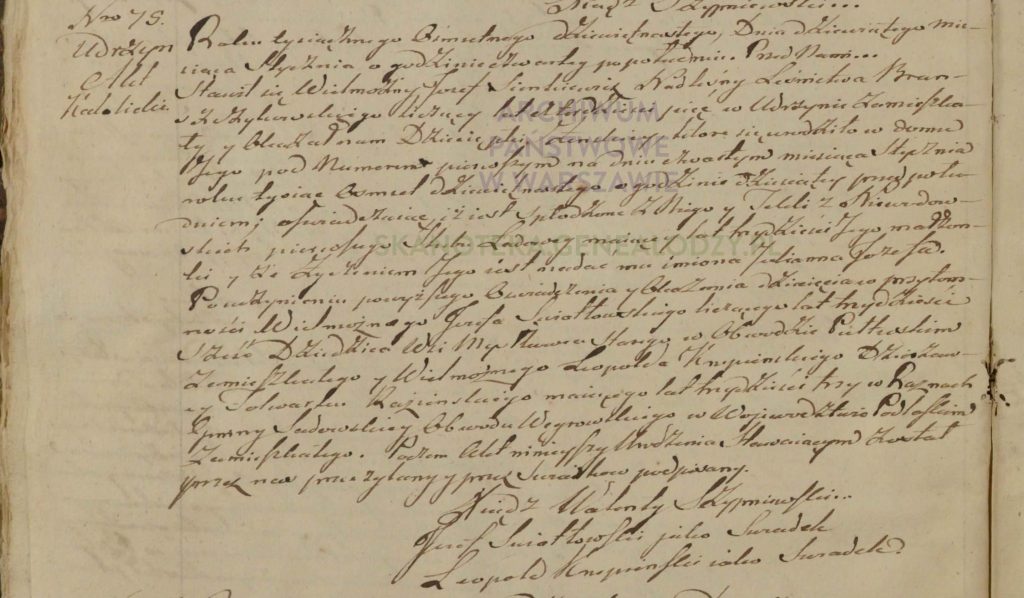 Xiądz Szypniewski...
Nro 75.
Udrzyn
Akt
Katolicki
Roku tysiącznego Osmsetnego dziewiętnastego, Dnia dziewiątego mie-
siąca Stycznia o godzinie czwartey popołudniu. Przed Nami...
Stawił się Wielmożny Jozef Sienkiewicz Nadleśny Leśnictwa Bran-
liczący lat w Udrzynie zamieszka-
ły y okazał nam Dziecię płci które się urodziło w domu
Jego pod Numerem pierwszym na dniu czwartym miesiąca Stycznia
roku tysiąc Osmset dziewiętnastego o godzinie dziesiątey przed połu-
dniem, oświadczaiąc, iż iest spłodzone z Niego y Tekli z
pierwszego Ślubu maiącey lat trzydzieści Jego małżon-
ki y że życzeniem Jego iest nadać mu imiona Julianna Jozefa.
Po uczynieniu powyższego Oświadczenia y Okazania dziecięcia w przytom-
ności Wielmożnego Jozefa Swiatłowskiego liczącego lat trzydzieści
sześć Dziedzica Wsi Starego w Obwodzie Pułtuskim
Zamieszkałego y Wielmożnego Leopolda Krępieńskiego Dzierzaw-
cy Folwarku maiącego lat trzydzieści trzy w
Gminy Sadowskiey Obwodu Węgrowskiego w Woiewodztwie Podlaskim
Zamieszkałego. Poczem Akt ninieyszy Urodzenia Stawaiącym został
przez nas przeczytany y przez Swiadków podpisany.
Xiądz Walenty Szypniewski...
Jozef Swiatłowski jako Swiadek
Leopold Krępieński iako Swiadek
ARCHIWUM
PAŃSTWOWE
W WARSZAWIE
SKANOTEKA.GENEALODZY.PL